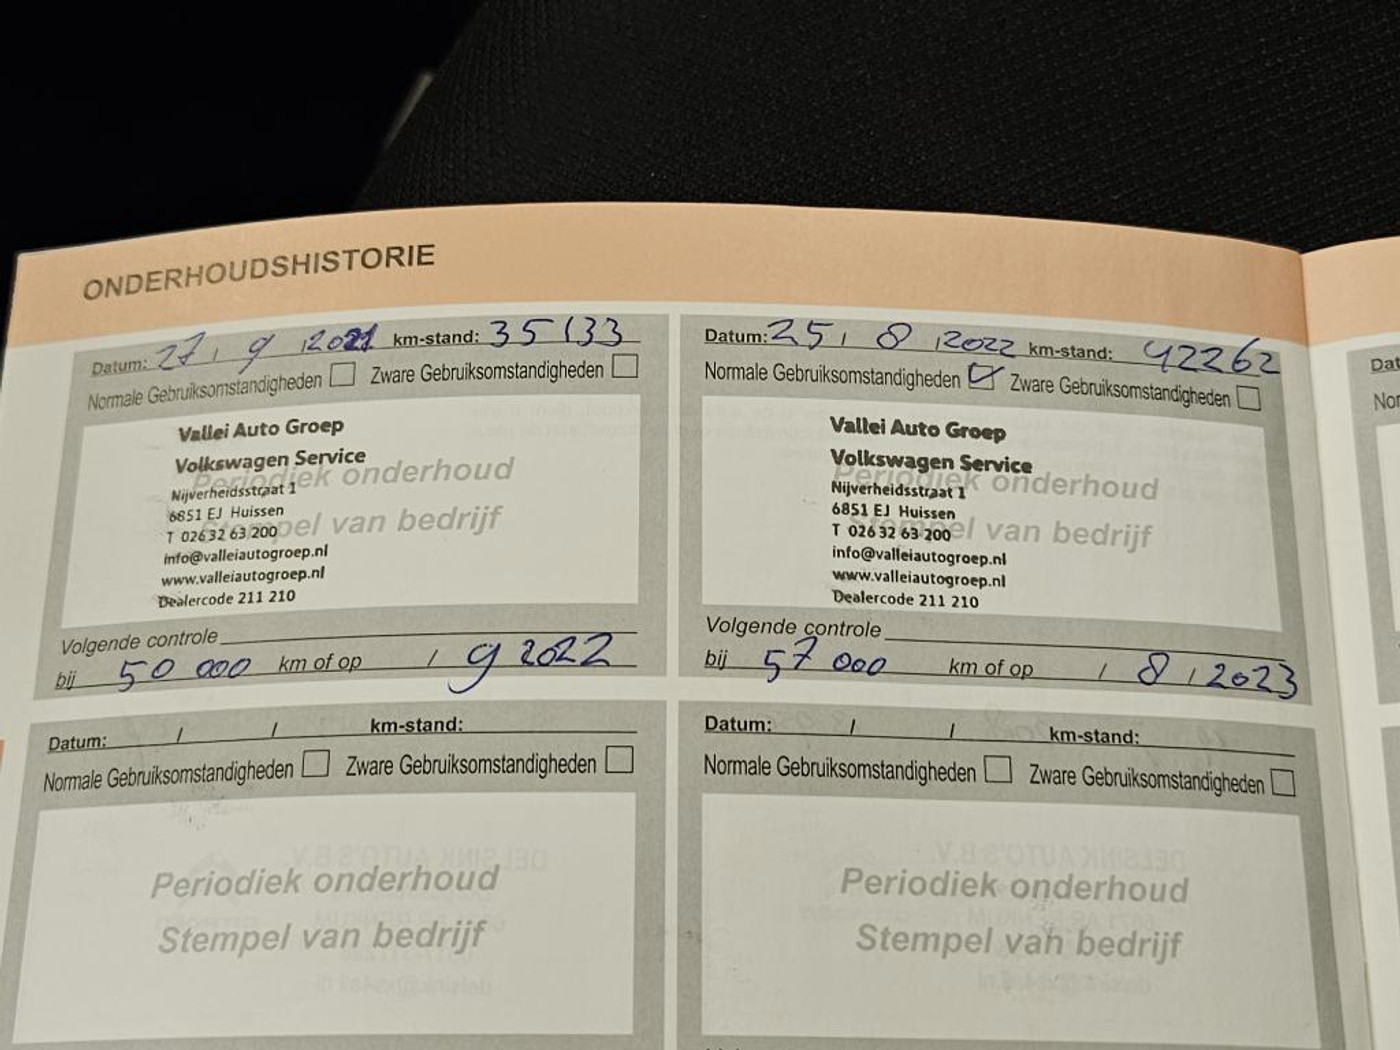 ONDERHOUDSHISTORIE
Datum: 27 / 9 / 2021 km-stand: 35133
Normale Gebruiksomstandigheden Zware Gebruiksomstandigheden
Vallei Auto Groep
Volkswagen Service
Periodiek onderhoud
Nijverheidsstraat 1
6851 EJ Huissen
Stempel van bedrijf
T 026 32 63 200
info@valleiautogroep.nl
www.valleiautogroep.nl
Dealercode 211 210
Volgende controle
bij 50 000 km of op / 9 2022
Datum: 25 / 8 / 2022 km-stand: 42262
Normale Gebruiksomstandigheden Zware Gebruiksomstandigheden
Vallei Auto Groep
Volkswagen Service
Periodiek onderhoud
Nijverheidsstraat 1
6851 EJ Huissen
Stempel van bedrijf
T 026 32 63 200
info@valleiautogroep.nl
www.valleiautogroep.nl
Dealercode 211 210
Volgende controle
bij 57 000 km of op / 8 / 2023
Datum: / / km-stand:
Normale Gebruiksomstandigheden Zware Gebruiksomstandigheden
Periodiek onderhoud
Stempel van bedrijf
Datum: / / km-stand:
Normale Gebruiksomstandigheden Zware Gebruiksomstandigheden
Periodiek onderhoud
Stempel van bedrijf